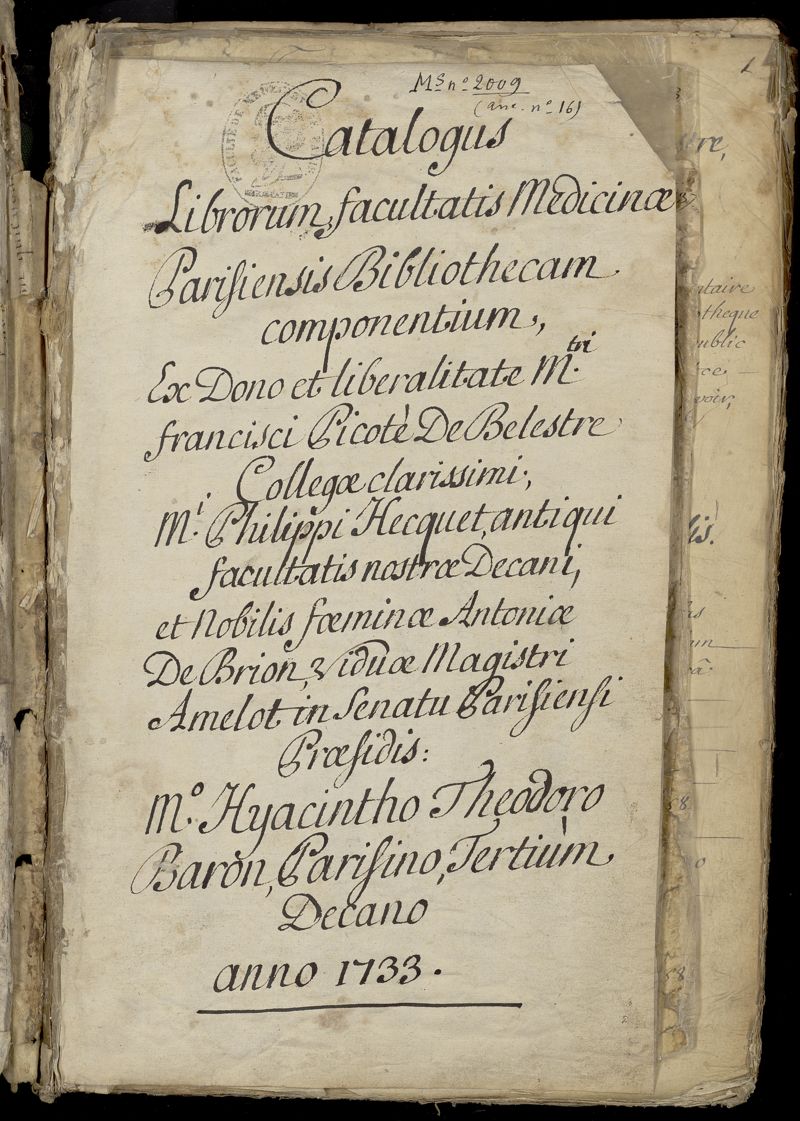 Ms nº 2009
(anc. nº 16)
FACULTÉ DE MEDECINE
Catalogus
Librorum, facultatis Medicinæ
Parisiensis Bibliothecam
componentium,
Ex Dono et liberalitate M.tri
francisci Picotè De Belestre
Collegæ clarissimi,
M.i Philippi Hecquet, antiqui
facultatis nostræ Decani,
et Nobilis fœminæ Antoniæ
De Brion, Viduæ Magistri
Amelot in Senatu Parisiensi
Præsidis:
M.o Hyacintho Theodoro
Baron, Parisino, Tertiùm
Decano
anno 1733.
1
stre,
ataire
otheque
ublic
voir,
lis.
58
58